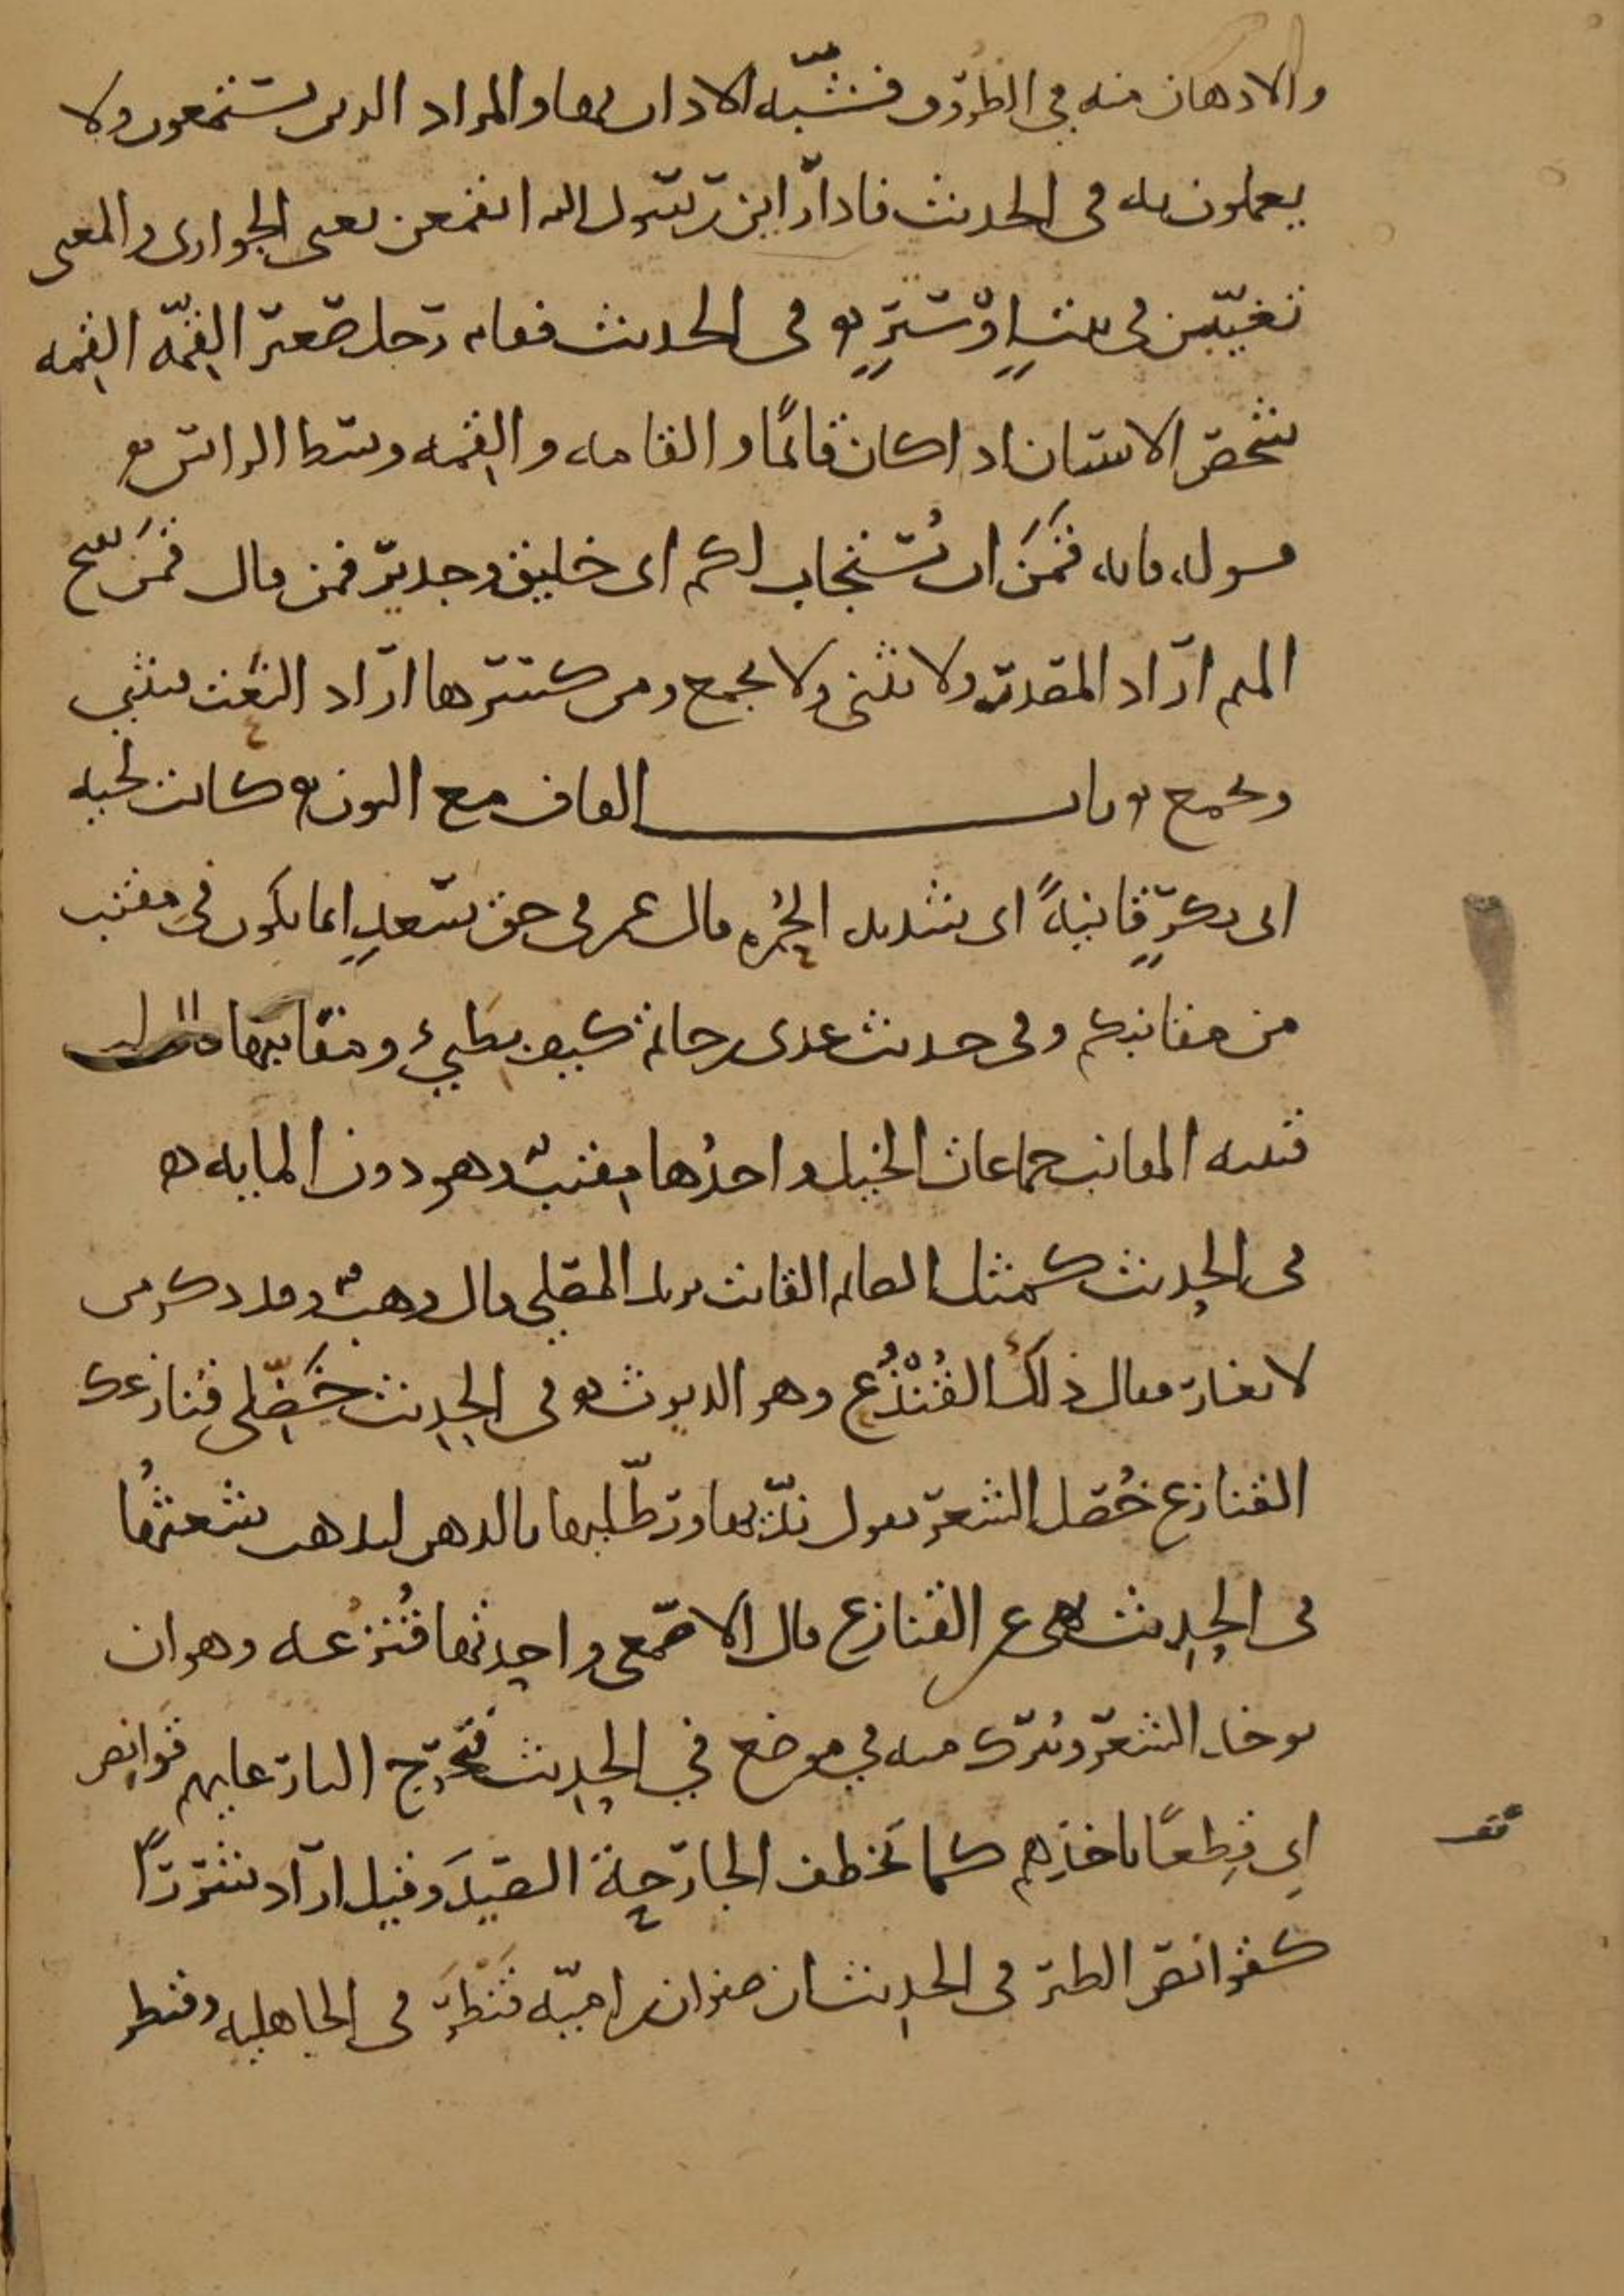 والادهان منه في الظروف فشبّه الاذان بها والمراد الذين يستمعون ولا
يعملون به في الحديث فاذا رأين رسول الله انقمعن يعني الجواري والمعنى
تغيّبن في بيتٍ او سترٍ ه في الحديث فقام رجل صغير القِمّة القِمه
شخص الانسان اذا كان قائمًا والقامه والقِمه وسط الراس ه
قوله فانه قَمَنٌ ان يُستجاب لكم اى خليق وجدير فمن قال قَمَن بفتح
الميم اراد المصدر ولا يثنى ولا يجمع ومن كسرها اراد النعت فيثني
ويجمع ه باب القاف مع النون ه كانت لحيه
ابى بكرٍ قانيةً اى شديد الحُمره قال عمر في حق سعدٍ انما يكون في مِقنب
من مقانبكم وفى حديث عدى بن حاتم كيف بطيّئ ومقانبها قال ابن
قتيبه المقانب جماعات الخيل واحدُها مِقنبٌ وهو دون المايه ه
في الحديث كمثل الصايم القانت يريد المصلي قال وهبٌ وقد ذكر من
لا يغار فقال ذلك القُنْذُع وهو الديوث ه وفى الحديث خَضِّلي قنازعك
القنازع خُصَل الشعر يقول ندّيها ورطّليها بالدهن ليذهب شعثُها
في الحديث نهى عن القنازع قال الاصمعي واحدتها قُنزُعه وهو ان
يوخذ الشعر ويُترك منه في موضع في الحديث فتَخرج النار عليهم قوانِص
اى قِطعًا تاخذهم كما تخطف الجارحة الصيدَ وقيل اراد شررًا
كقوانص الطير في الحديث ان صفوان بن اميّه قَنْطَرَ في الجاهليه وقنطر